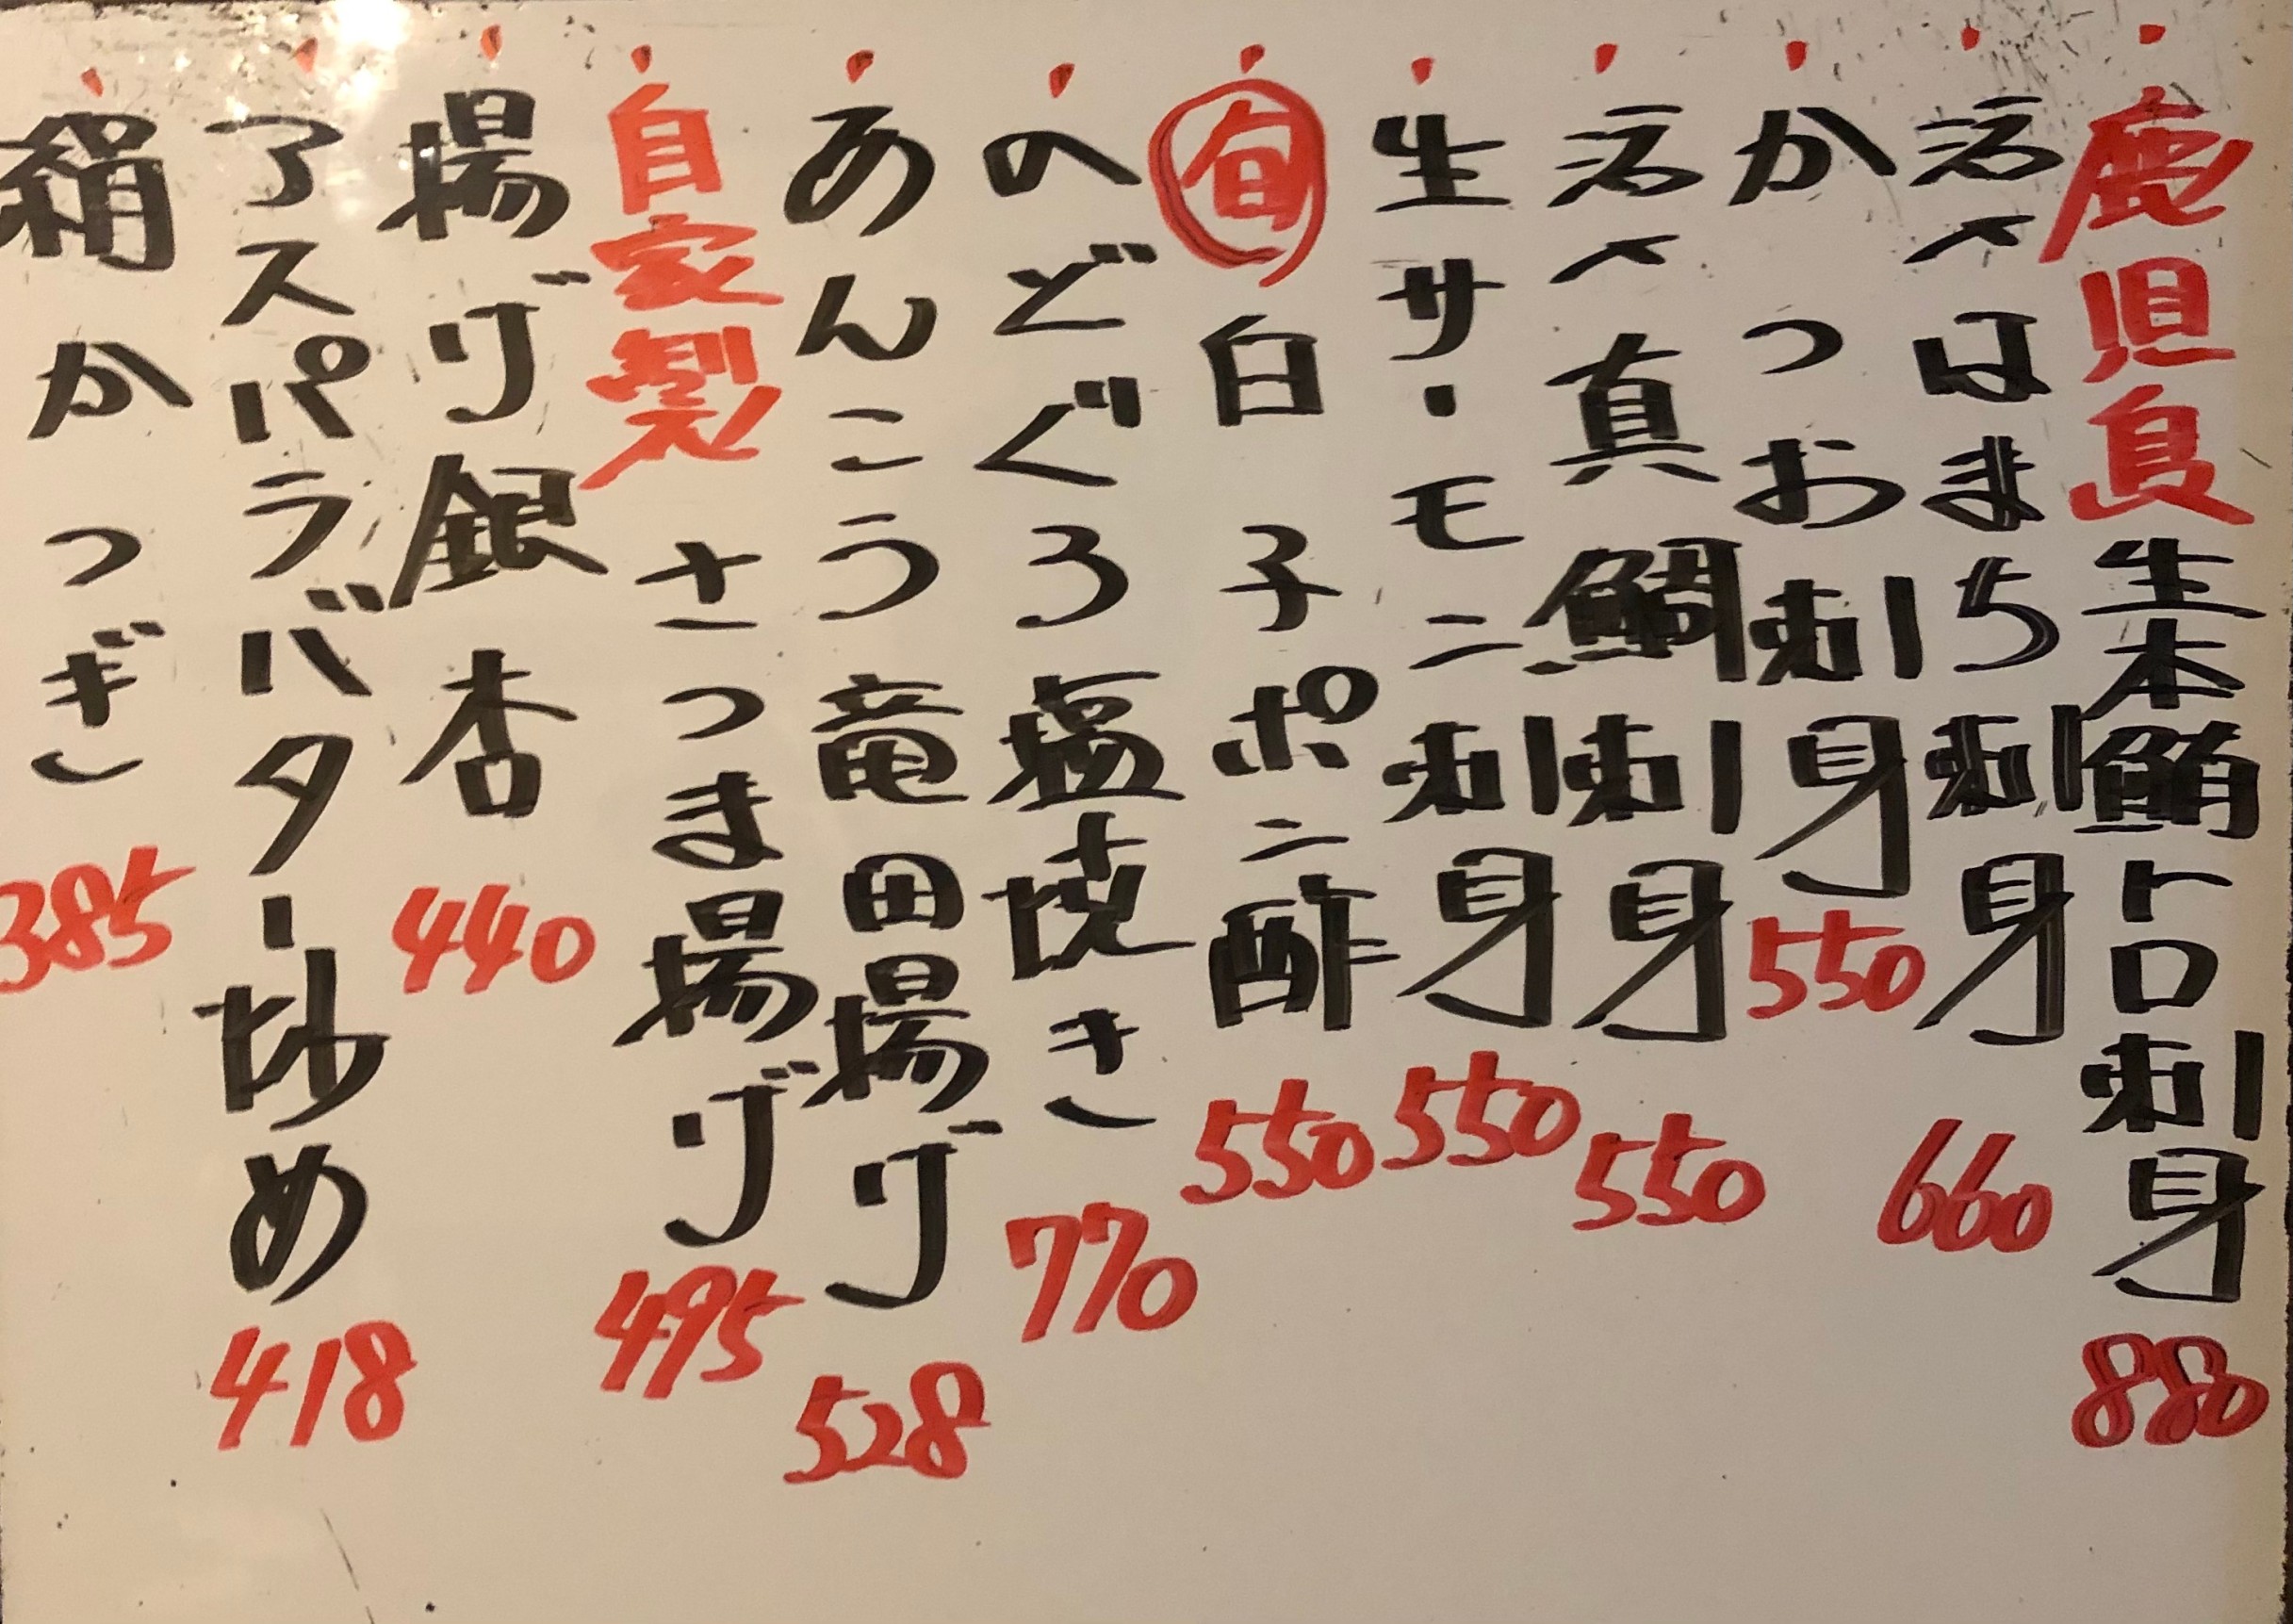 鹿児島生本鮪トロ刺身 880
活〆はまち刺身 660
かつお刺身 550
活〆真鯛刺身 550
生サーモン刺身 550
旬 白子ポン酢 550
のどぐろ塩焼き 770
あんこう竜田揚げ 528
自家製さつま揚げ 495
揚げ銀杏 440
アスパラバター炒め 418
絹かつぎ 385